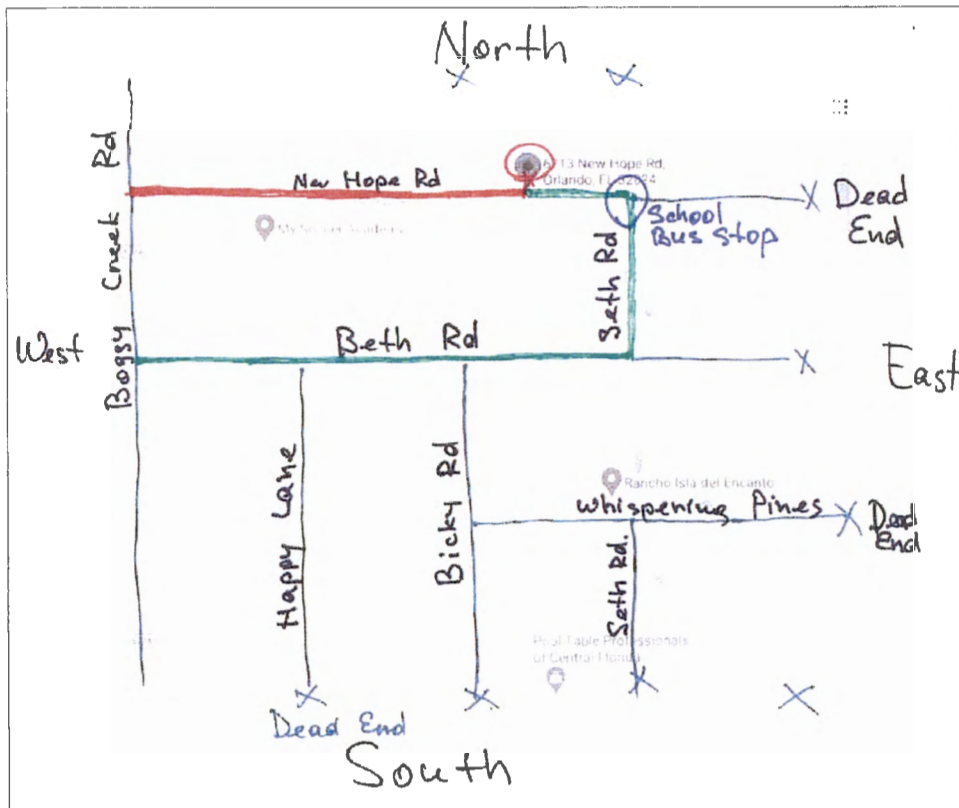 North
Boggy Creek Rd
New Hope Rd
6213 New Hope Rd,
Orlando, FL 32824
Dead
End
School
Bus Stop
Seth Rd
West
Beth Rd
East
Happy Lane
Bicky Rd
Rancho Isla del Encanto
Whispering Pines
Dead
End
Seth Rd.
Pool Table Professionals
of Central Florida
Dead End
South